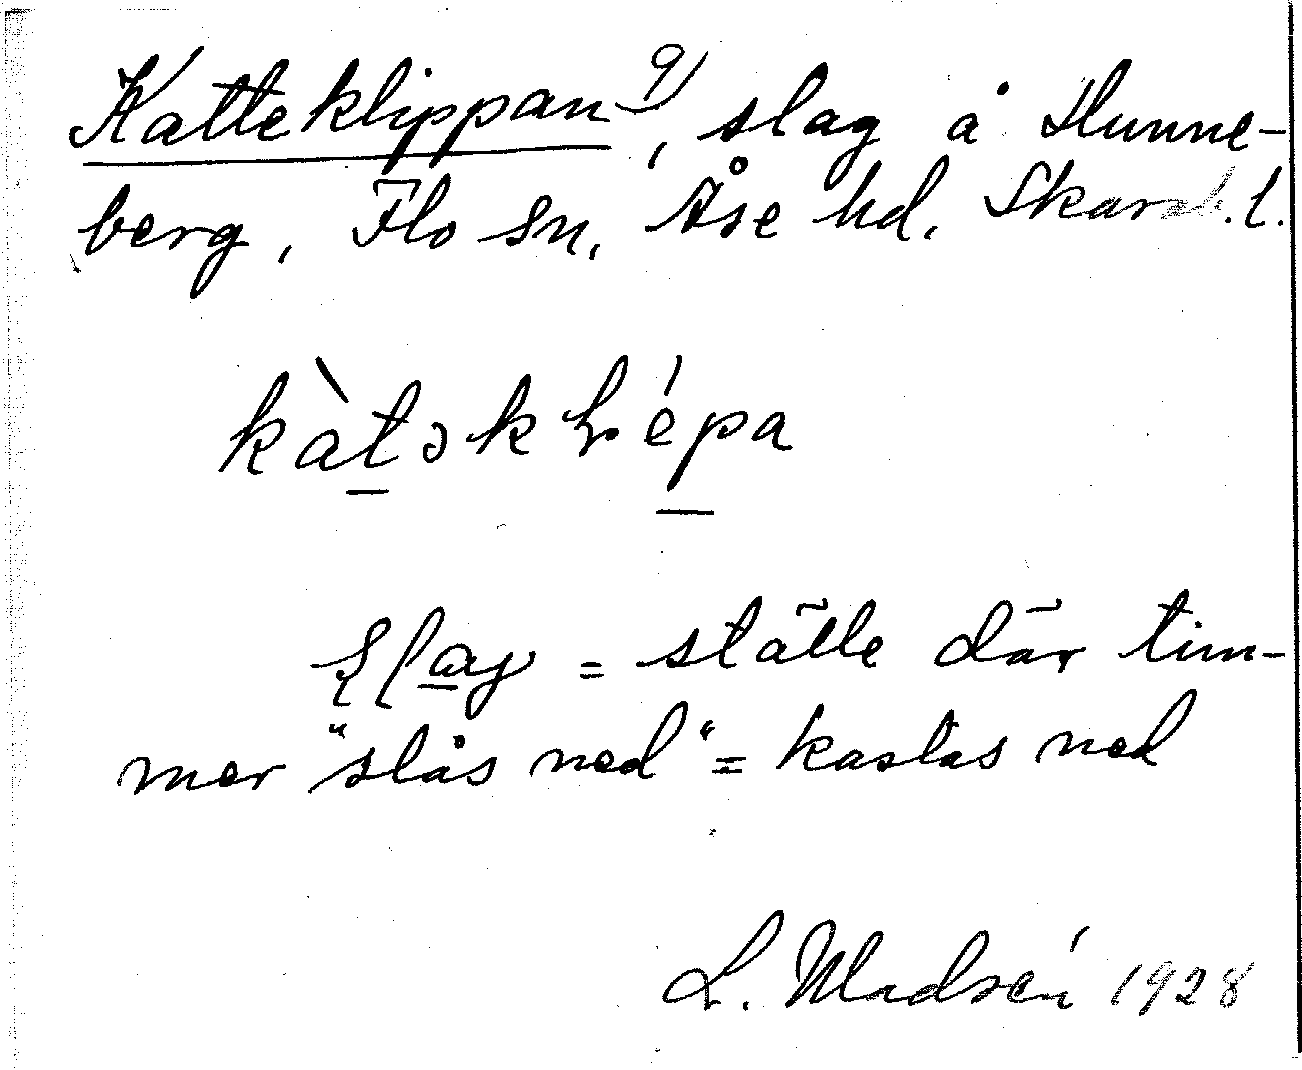 Katteklippan 9), slag å Hunne-
berg, Flo sn, Åse hd. Skarab. l.
kàtəkl̥épa
Slag = ställe där tim-
mer "slås ned" = kastas ned
L. Madsén 1928